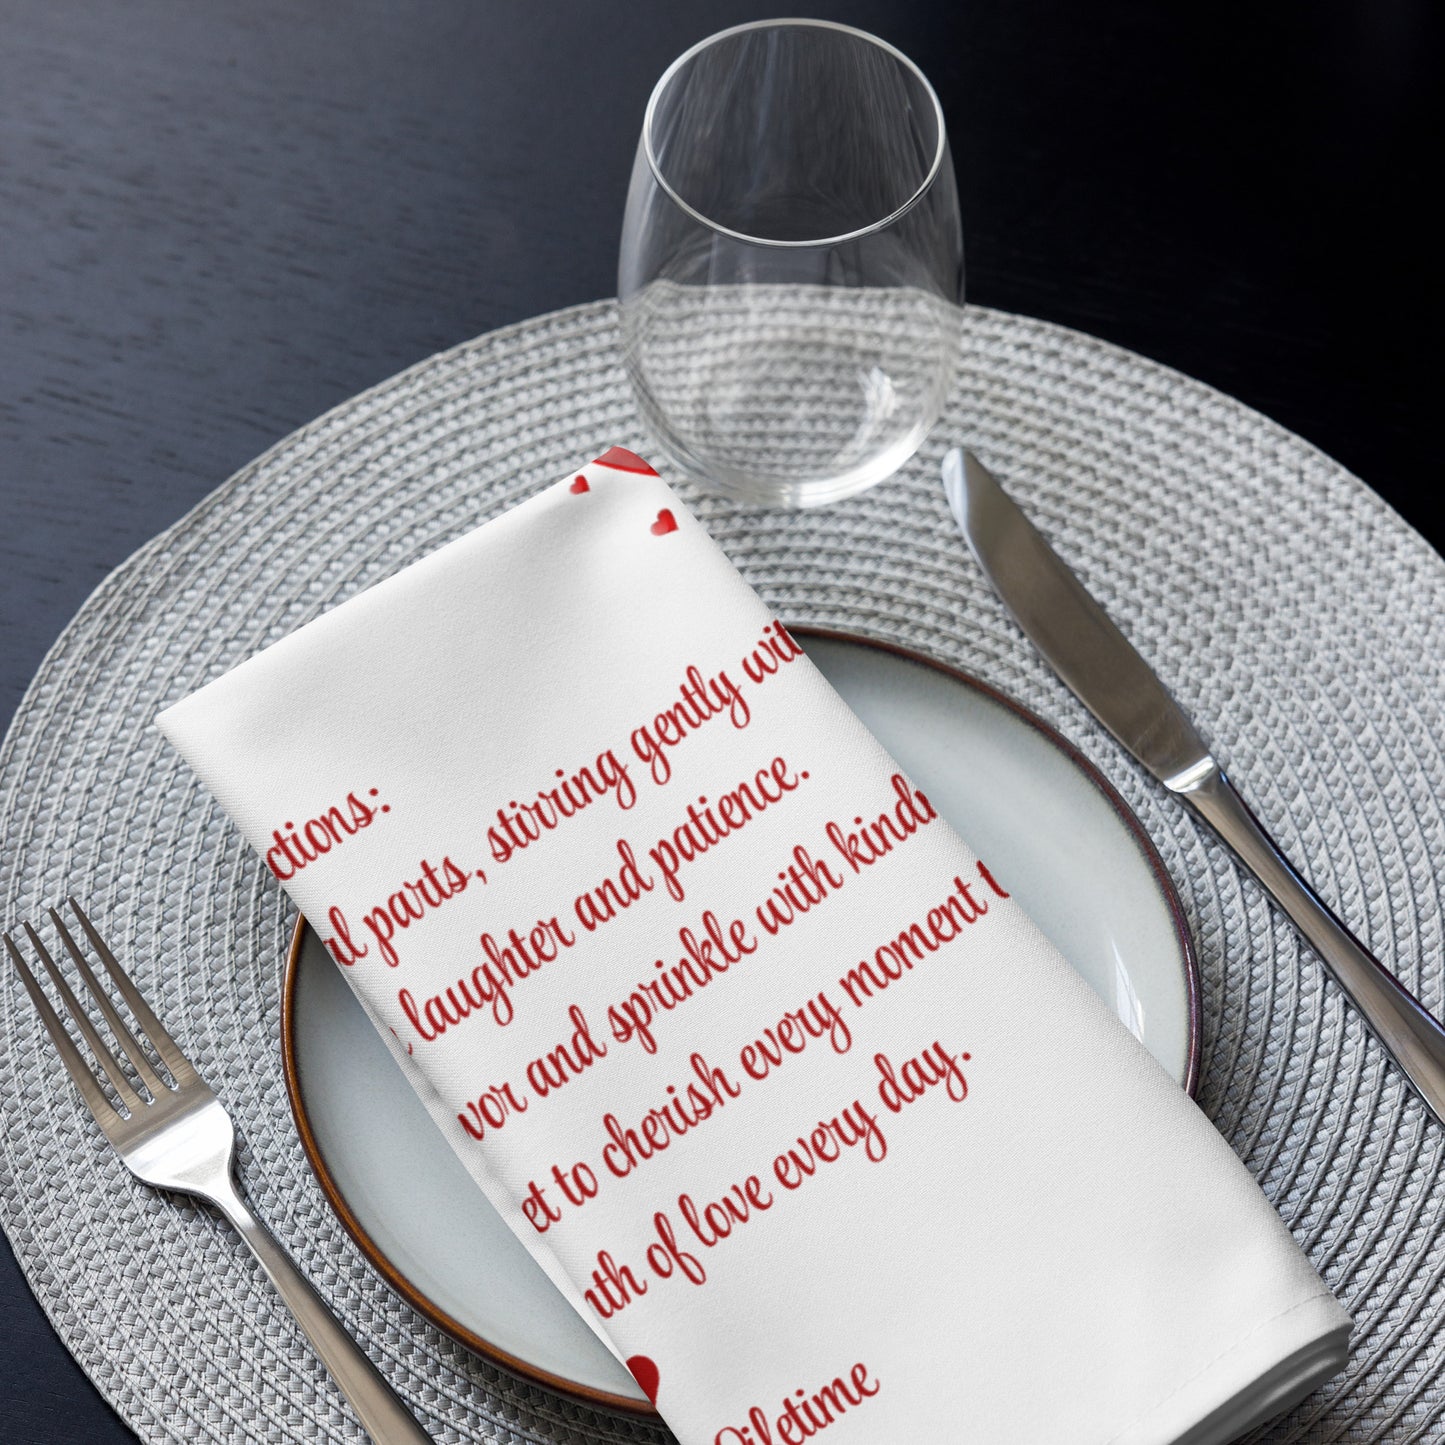 ctions:
al parts, stirring gently wit
laughter and patience.
vor and sprinkle with kindn
et to cherish every moment t
mth of love every day.
Lifetime